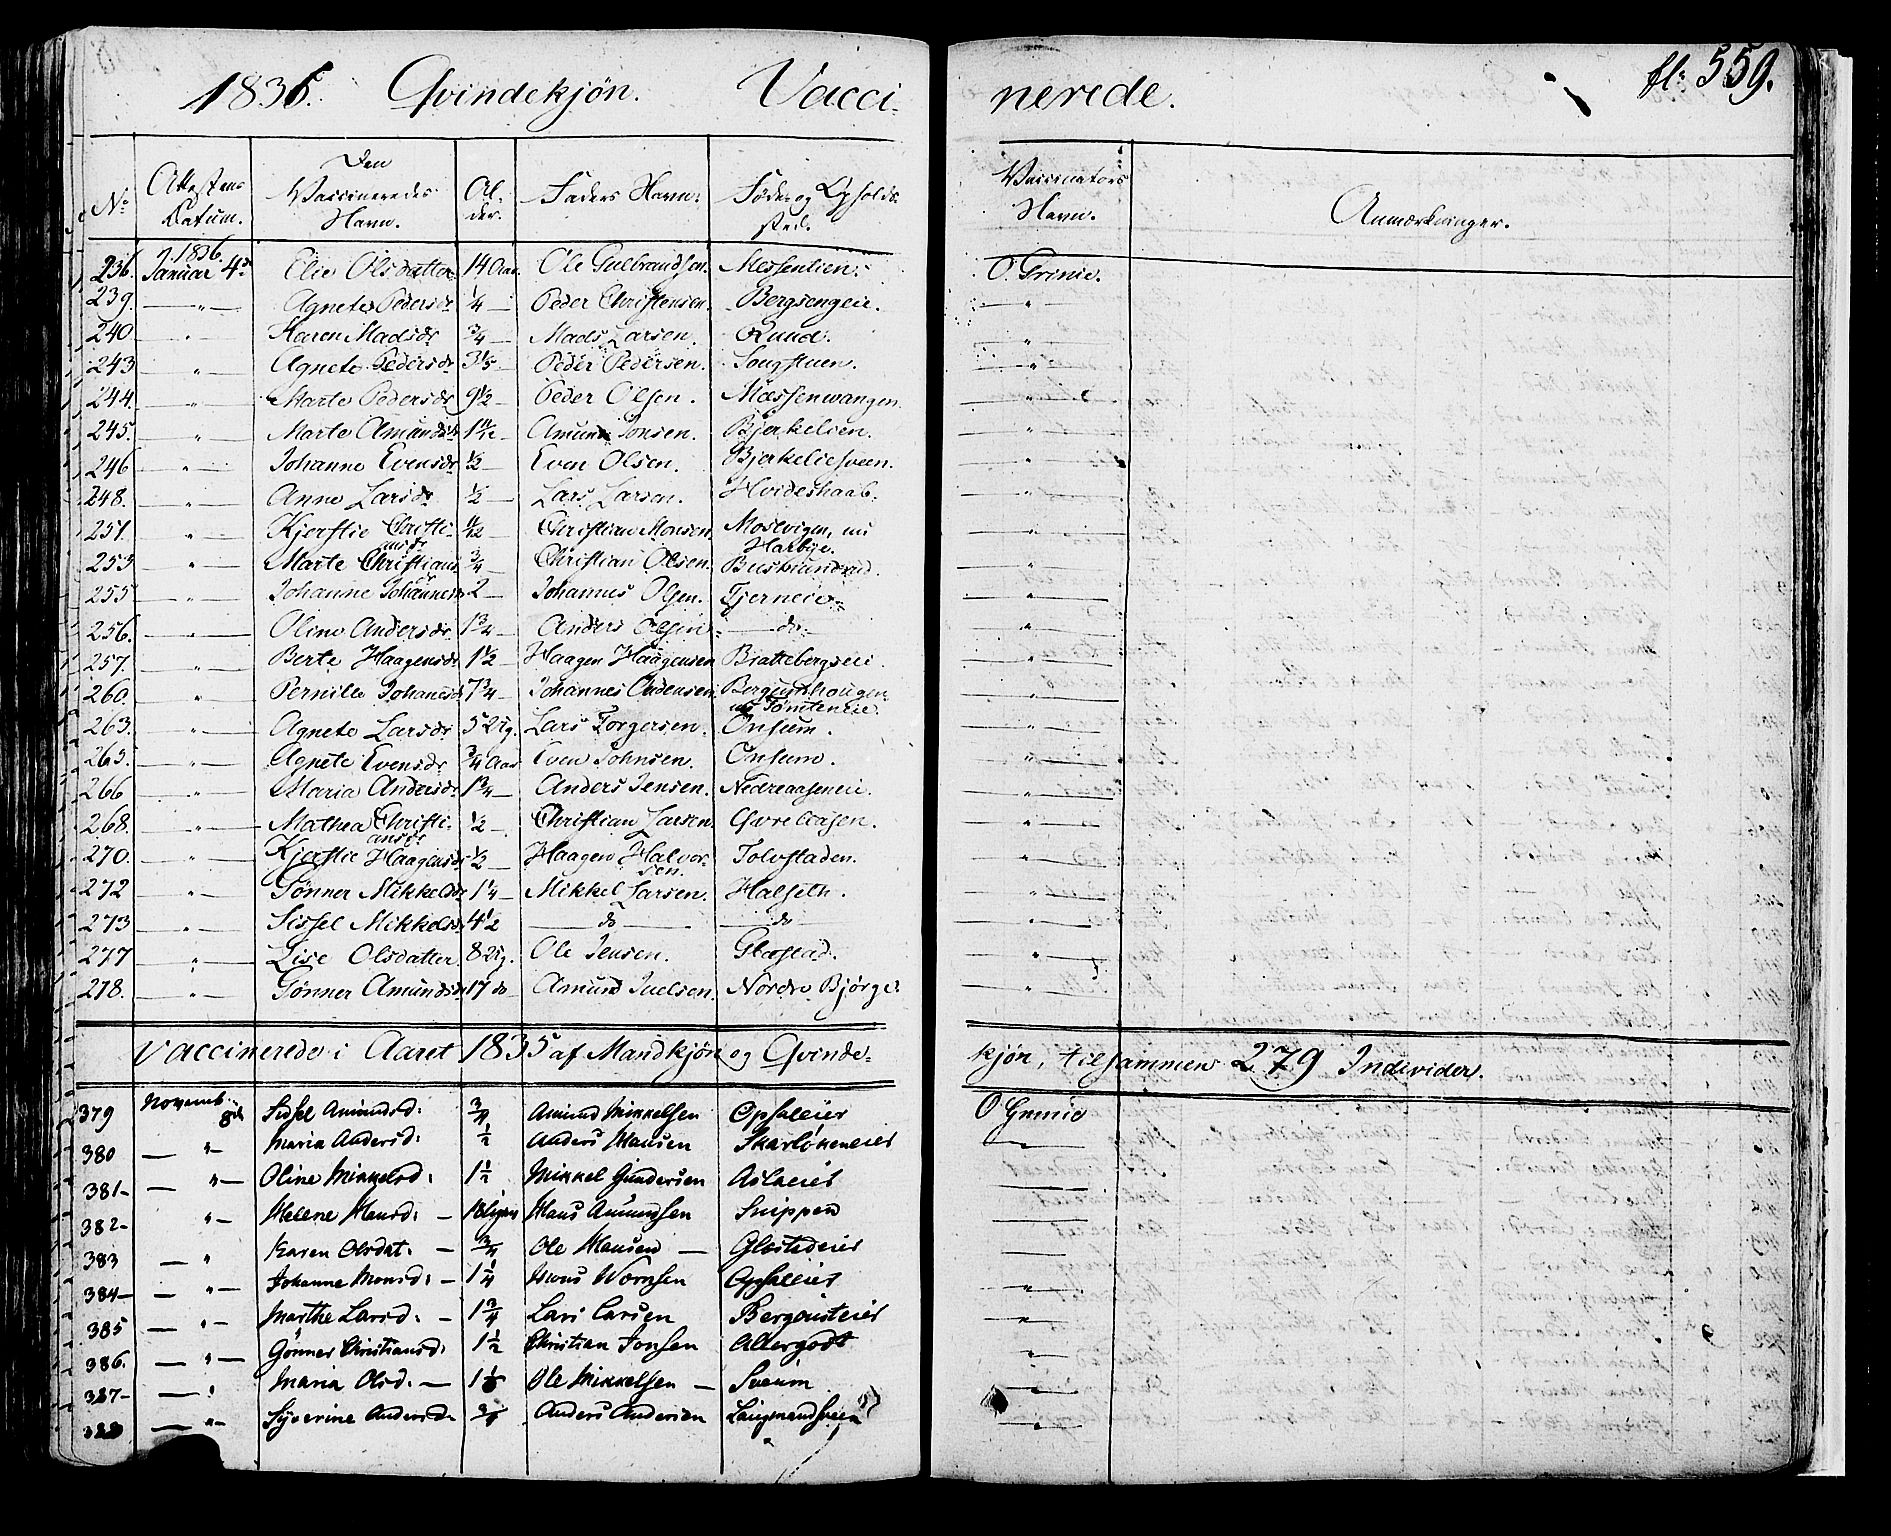 1836. Qvindekjön. Vacci-
nerede.
fl: 559.
No
Attestens Datum.
Den Vaccineredes Navn.
Al-der.
Faders Navn.
Føde- og Opholds-sted.
Vaccinators Navn.
Anmærkninger.
236. 1836 Januar 4de Elie Olsdatter 14 Aar Ole Gulbrandsen. Messenlien. O. Grinie.
239. — " — Agnete Pedersdr 1/4 — Peder Christensen. Bergsengeie. — " —
240. — " — Karen Madsdr 3/4 — Mads Larsen. Ruud. — " —
243 — " — Agnete Pedersdr 3 1/5 — Peder Pedersen. Sougstuen. — " —
244. — " — Marte Pedersdr 9 1/2 — Peder Olsen. Mæssenwangen. — " —
245. — " — Marte Amundsdr 1 11/12 — Amund Jonsen. Bjerkelien. — " —
246 — " — Johanne Evensdr 1/2 — Even Olsen. Bjerkeliesveen. — " —
248. — " — Anne Larsdr 1/2 — Lars Larsen. Hvideshaab. — " —
251. — " — Kjerstie Christi-ansdr 11/12 Christian Monsen. Mosevigen, nu Harbye. — " —
253 — " — Marte Christians dr 3/4 — Christian Olsen. Buskrudrud. — " —
255 — " — Johanne Johannesdr 2 — Johannes Olsen. Tjerneie — " —
256. — " — Oline Andersdr 1 3/4 — Anders Olsen — do — — " —
257. — " — Berte Haagensdr 1 1/2 — Haagen Haagensen Brattebergseie. — " —
260. — " — Pernille Johannesdr 7 3/4 — Johannes Andersen. Bergumhougen nu Tomteneie. — " —
263. — " — Agnete Larsdr 5 Ug. Lars Torgersen. Onsum. — " —
265. — " — Agnete Evensdr 3/4 Aar Even Johnsen. Onsum. — " —
266 — " — Maria Andersdr 1 3/4 — Anders Jensen. Nedreaaseneie. — " —
268. — " — Mathea Christi-ansdr 1/2 — Christian Larsen. Øvre Aasen. — " —
270. — " — Kjerstie Haagensdr 1/2 — Haagen Halvor-sen. Tolvstaden. — " —
272 — " — Gönner Mikkelsdr 1 1/4 — Mikkel Larsen. Halseth. — " —
273 — " — Sissel Mikkelsdr 4 1/2 — do — — do — — " —
277 — " — Lise Olsdatter. 8 Ug. Ole Jensen. Glæstad. — " —
278. — " — Gönner Amundsdr 17 do Amund Juelsen. Nordre Bjørge. — " —
Vaccinerede i Aaret 1835 af Mandkjön og Qvinde-
kjön, tilsammen 279 Individer.
379 Novemb. 8de Sidsel Amundsd: 3/4 Amund Mikkelsen Opsaleier O Grinie
380 — " — Maria Andersd: 1/2 Anders Hansen Skarlökeneier — " —
381- — " — Oline Mikkelsd: 1 1/2 Mikkel Gundersen Aslaeier
382- " — Helene Hansd: — 18 Ugers Hans Amundsen Snippen
383 — " Karen Olsdat: — 3/4 Ole Hansen — Glæstadeier
384- — " — Johanne Monsd: — 1 1/4 Mons Wornsen Opsaleier — " —
385 — " — Marthe Larsd: — 1 3/4 Lars Larsen Bergousteier — " —
386. — " — Gönner Christiansd: 1 1/2 Christian Jonsen Allergodt — " —
387- — " Maria Olsd: — 1 Ole Mikkelsen — Sveum — " —
388 — " — Syverine Andersd 3/4 Anders Andersen Laugmandsveen — " —